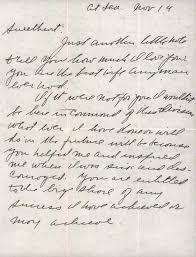 At Sea Nov 19
Sweetheart:
Just another little note
to tell you how much I love you.
you are the best wife any man
ever had.
If it were not for you I wouldn't
be here in command of this
what ever I have done or will
do in the future will be because
you helped me and inspired
me when I was sick and dis-
couraged. You are entitled
to the big share of any
success I have achieved or
may achieve